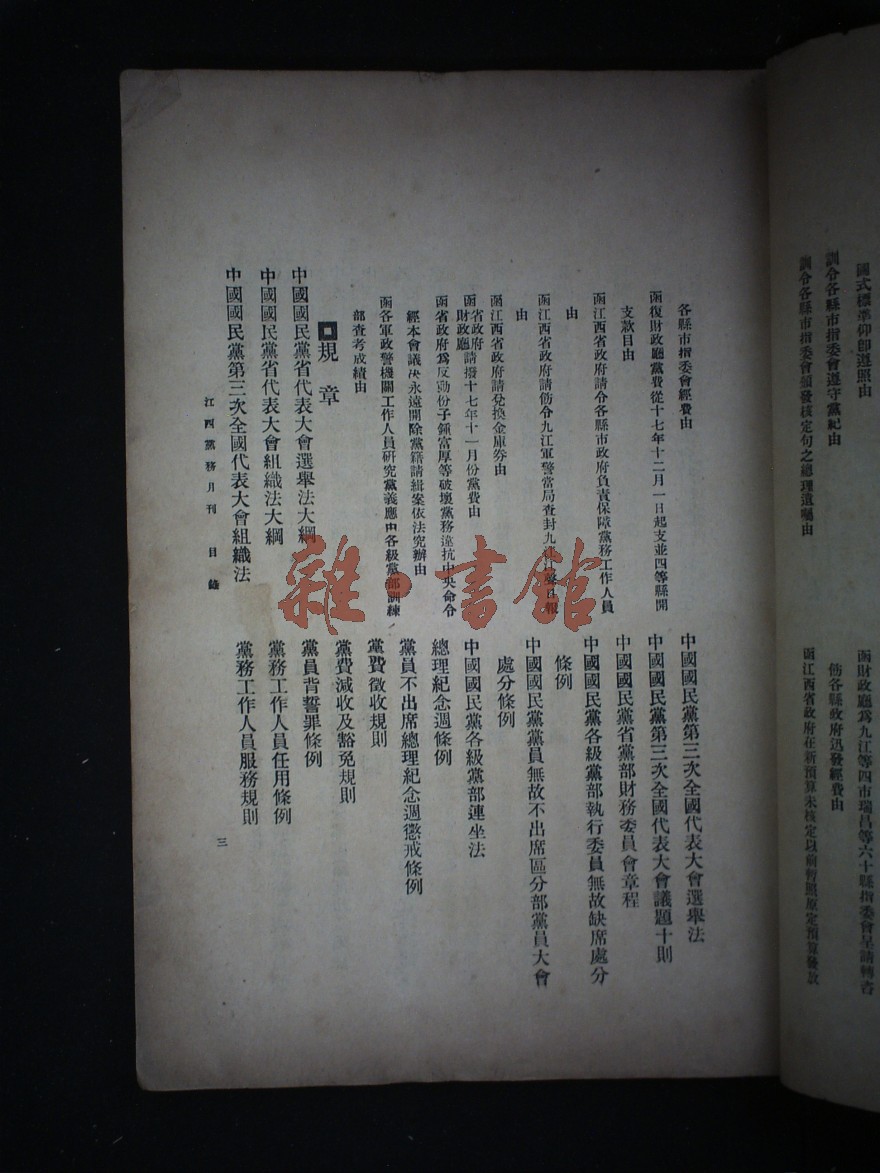 圖式標準仰卽遵照由
訓令各縣市指委會遵守黨紀由
訓令各縣市指委會頒發核定句之總理遺囑由
函財政廳爲九江等四市瑞昌等六十縣指委會呈請轉咨
飭各縣政府迅發經費由
函江西省政府在新預算未核定以前暫照原定預算發放
各縣市指委會經費由
函復財政廳黨費從十七年十二月一日起支並四等縣開
支款目由
函江西省政府請令各縣市政府負責保障黨務工作人員
由
函江西省政府請飭令九江軍警當局查封九江日報
由
函江西省政府請兌換金庫券由
函省政府財政廳請撥十七年十一月份黨費由
函省政府爲反動份子鍾富厚等破壞黨務違抗中央命令
經本會議决永遠開除黨籍請緝案依法究辦由
函各軍政警機關工作人員研究黨義應由各級黨部訓練
部查考成績由
規章
中國國民黨省代表大會選舉法大綱
中國國民黨省代表大會組織法大綱
中國國民黨第三次全國代表大會組織法
中國國民黨第三次全國代表大會選舉法
中國國民黨第三次全國代表大會議題十則
中國國民黨省黨部財務委員會章程
中國國民黨各級黨部執行委員無故缺席處分
條例
中國國民黨黨員無故不出席區分部黨員大會
處分條例
中國國民黨各級黨部連坐法
總理紀念週條例
黨員不出席總理紀念週懲戒條例
黨費徵收規則
黨費減收及豁免規則
黨員背誓罪條例
黨務工作人員任用條例
黨務工作人員服務規則
江西黨務月刊 目錄
三
雜书館